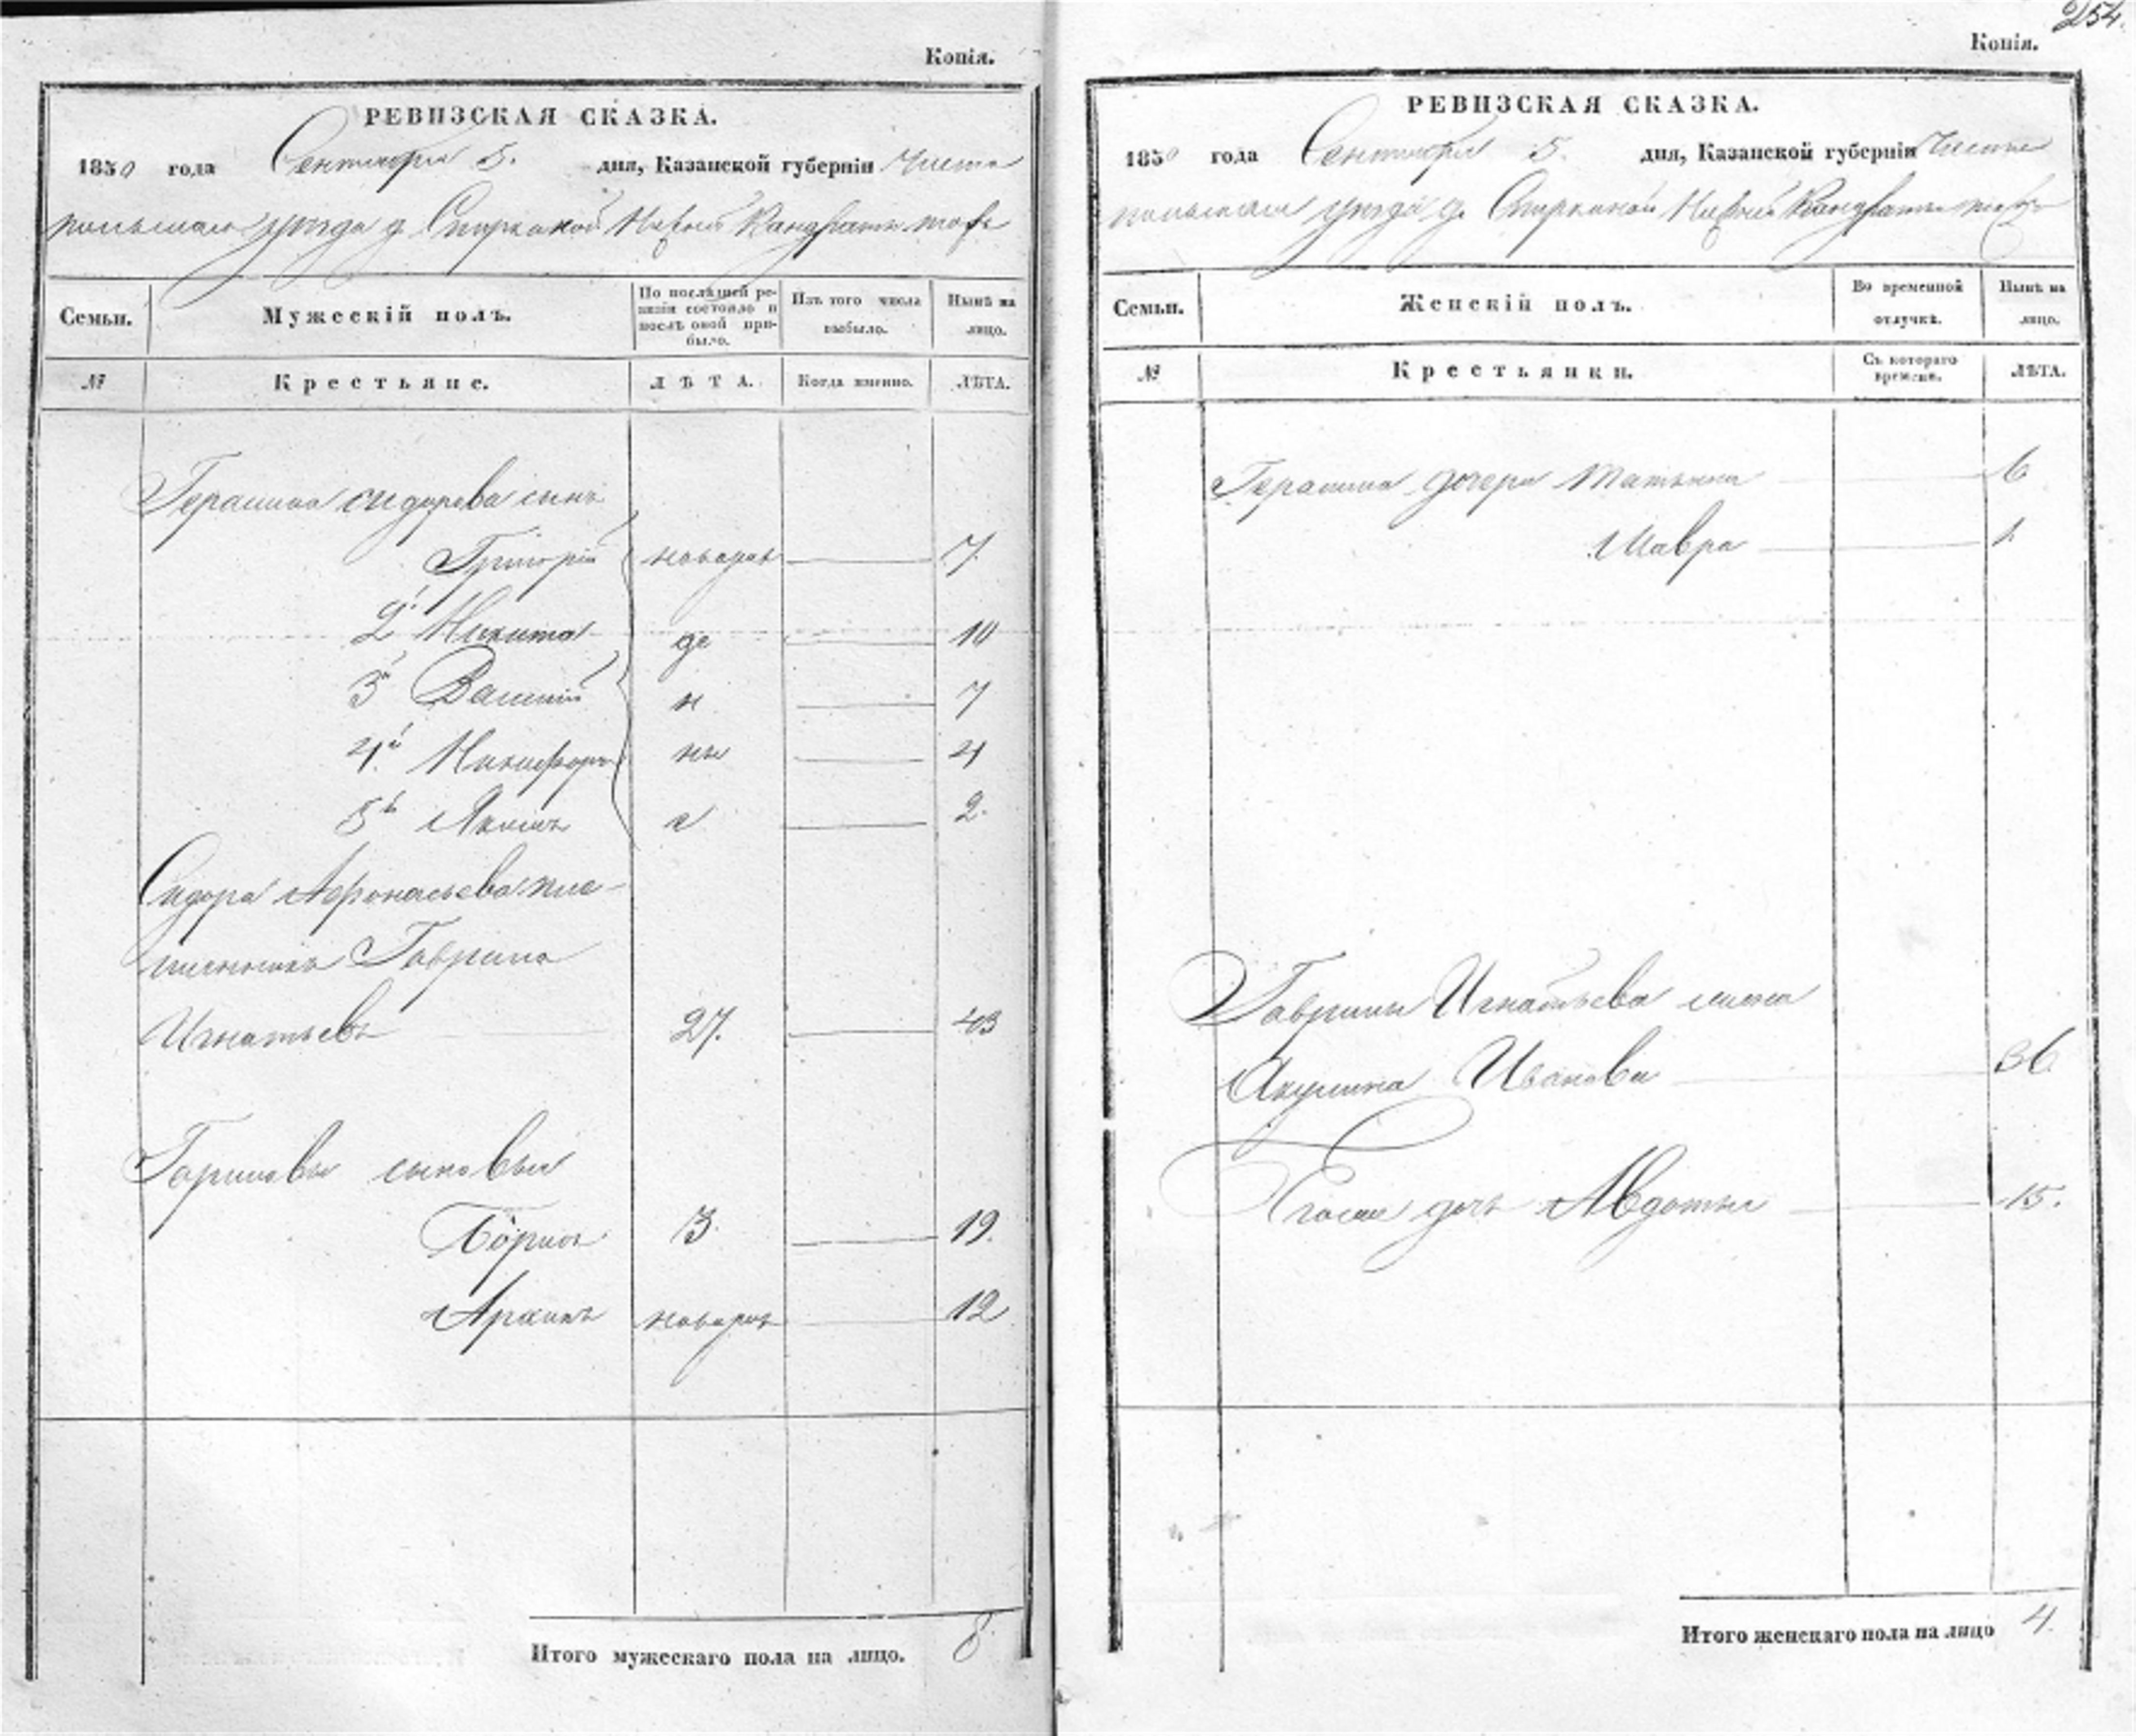 Копія.
РЕВИЗСКАЯ СКАЗКА.
1850 года Сентября 5. дня, Казанской губерніи Чисто
польскаго уезда д.
Семьи.
Мужескій полъ.
По послѣдней ре-
визіи состояло и
послѣ оной при-
было.
Изъ того числа
выбыло.
Нынѣ на
лицо.
№
Крестьяне.
ЛѢТА.
Когда именно.
ЛѢТА.
Герасима Сидорова сынъ
Григорій новорож 7.
2й Никита де 10
3й Василий н 7
4й Никифоръ ны 4
5й Акимъ е 2.
Сидора Афонасьева пле-
Гаврила
Игнатьевъ 27. 43
сыновья
Борисъ 3. 19.
Архипъ новорож 12
Итого мужескаго пола на лицо. 8.
254.
Копія.
РЕВИЗСКАЯ СКАЗКА.
1850 года Сентября 5. дня, Казанской губерніи Чисто
польскаго уезда д.
Семьи.
Женскій полъ.
Во временной
отлучкѣ.
Нынѣ на
лицо.
№
Крестьянки.
Съ котораго
времени.
ЛѢТА.
Герасима дочери Татьяна 6
Мавра 1.
Гаврилы Игнатьева жена
Акулина Иванова 36
дочь Авдотья 15.
Итого женскаго пола на лицо 4.